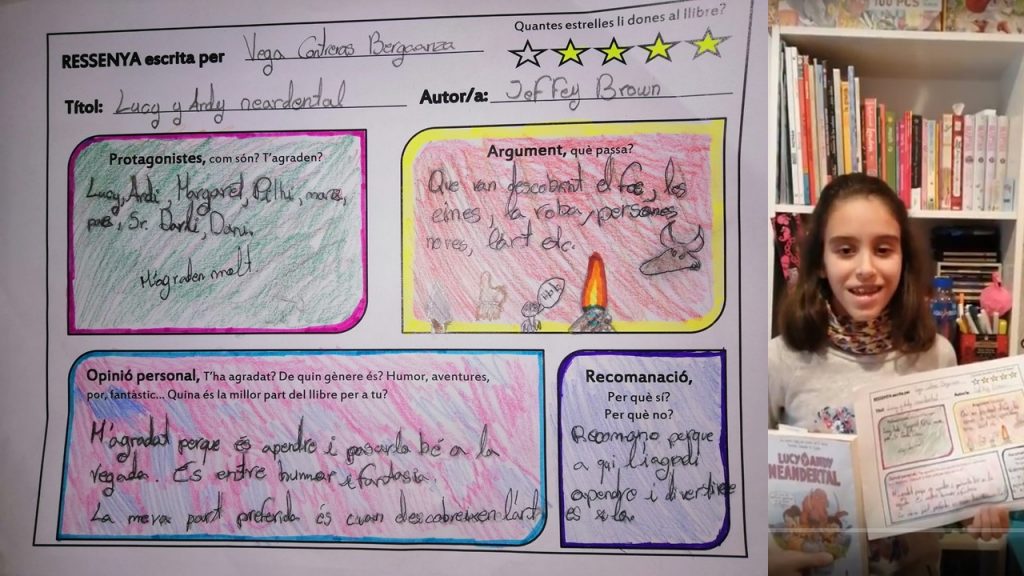 Quantes estrelles li dones al llibre?
RESSENYA escrita per Vega Contreras Bergaanza
Títol: Lucy y Andy neardental
Autor/a: Jeffey Brown
Protagonistes, com són? T'agraden?
Lucy, Andi, Margaret, Phil, mare,
pare, Sr. Dardi, Dani.
M'agraden molt.
Argument, què passa?
Que van descobrint el foc, les
eines, la roba, persones
noves, l'art etc.
Opinió personal, T'ha agradat? De quin gènere és? Humor, aventures,
por, fantàstic... Quina és la millor part del llibre per a tu?
M'agradat perque és apendre i pasarla bé a la
vegada. Es entre humor i fantasia.
La meva part preferida és cuan descobreixen l'art
Recomanació,
Per què sí?
Per què no?
Recomano perque
a qui li agadi
apendre i divertirse
es sila
100 PCS
LUCY & ANDY
NEANDERTAL